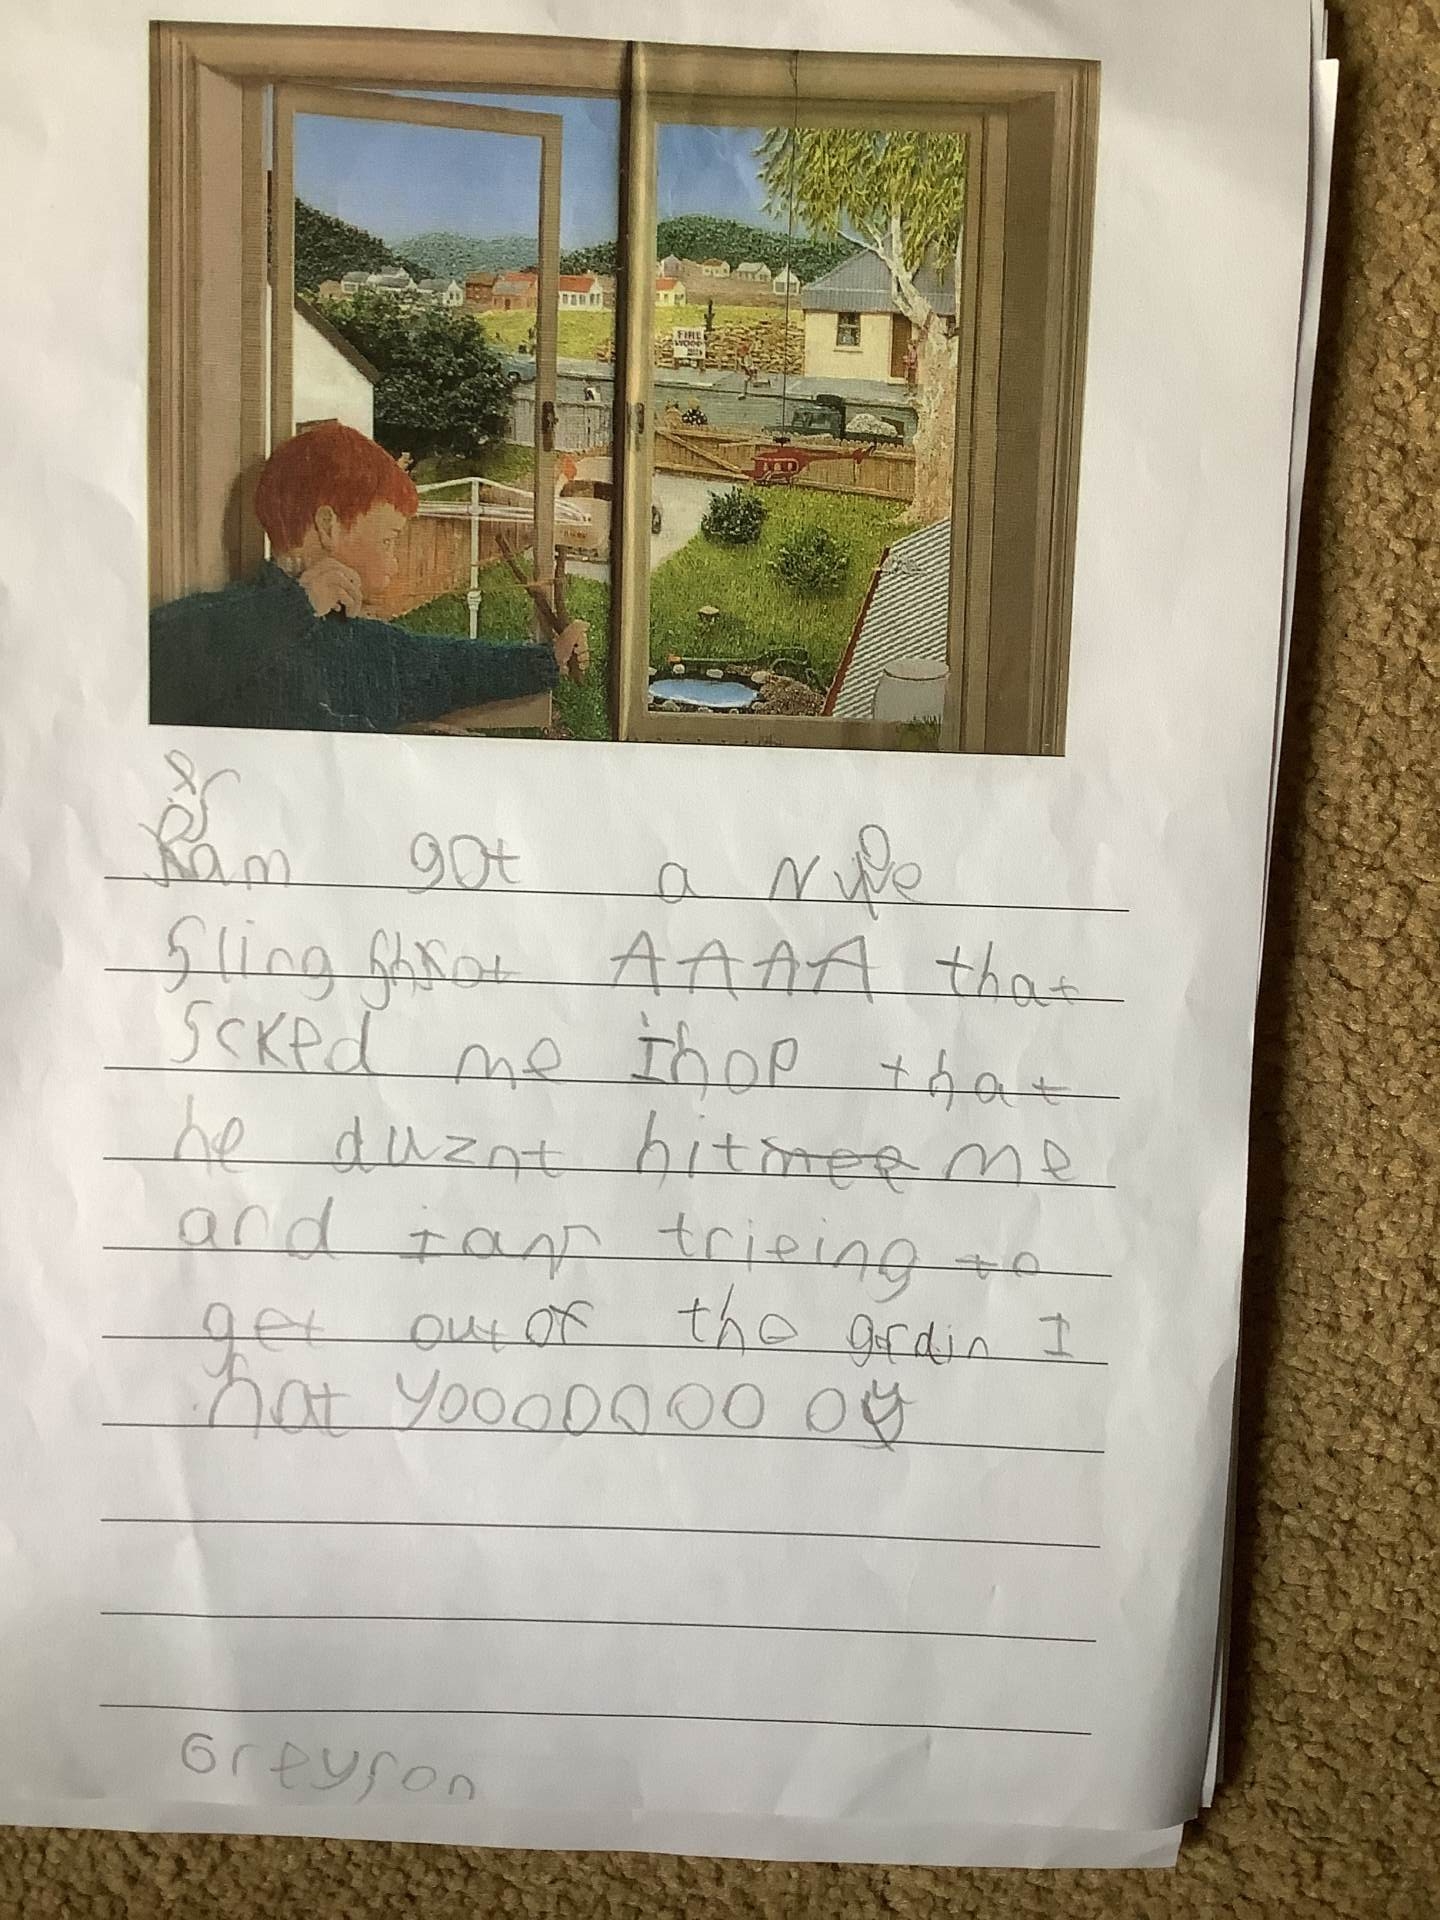 FIRE
WOOD
Sam got a nYpe
Sling Shot AAAA that
Scked me ihop that
he duznt hit mee me
and i am trieing to
get out of the grdin I
hat yooooooooo
Greyson